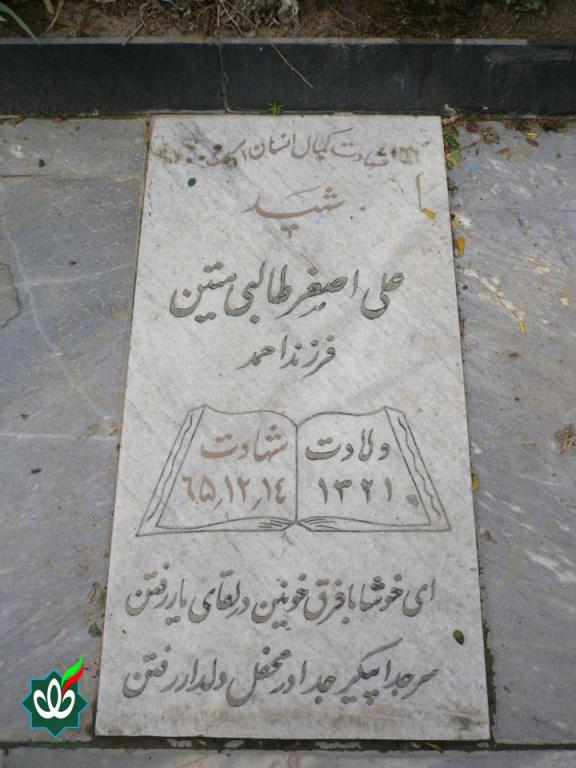 شهادت کمال انسان است
شهید
علی اصغر طالبی متین
فرزند احمد
ولادت
۱۳۲۱
شهادت
۶۵٫۱۲٫۱۴
ای خوشا با فرق خونین در لقای یار رفتن
سر جدا پیکر جدا در محفل دلدار رفتن